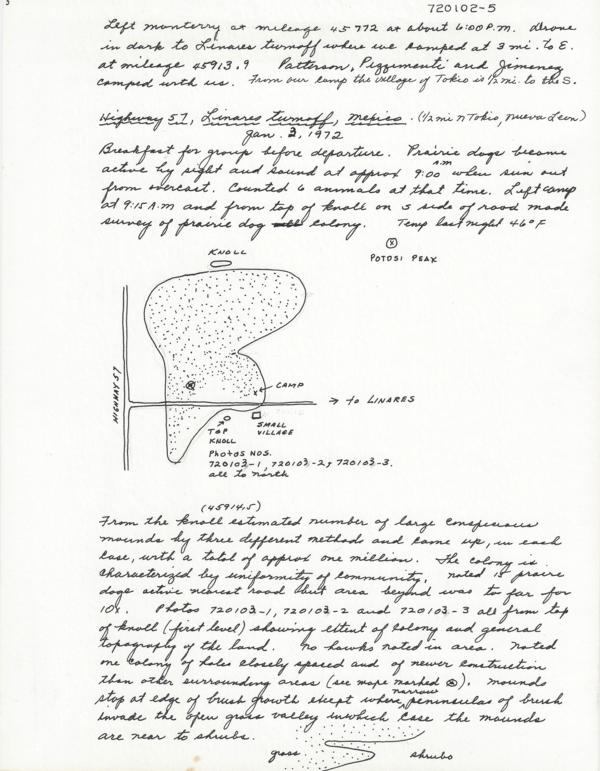 720102-5
Left Monterry at mileage 45772 at about 6:00 P.M. Drove
in dark to Linares turnoff where we camped at 3 mi. to E.
at mileage 45913.9 Patterson, Pizzimenti and Jimenez
camped with us. From our camp the village of Tokio is 1/2 mi. to the S.
Highway 57, Linares turnoff, Mexico. (1/2 mi N Tokio, Nueva Leon)
Jan. 3, 1972
Breakfast for group before departure. Prairie dogs became
active by sight and sound at approx 9:00 A.M when sun out
from overcast. Counted 6 animals at that time. Left camp
at 9:15 A.M and from top of knoll on S side of road made
survey of prairie dog colony. Temp last night 46° F
POTOSI PEAK
KNOLL
HIGHWAY 57
CAMP
→ to LINARES
TOP
KNOLL
SMALL
VILLAGE
Photos NOS.
720103-1, 720103-2, 720103-3.
all to north
(45914.5)
From the knoll estimated number of large conspicuous
mounds by three different methods and came up, in each
case, with a total of approx one million. The colony is
characterized by uniformity of community. Noted 15 prairie
dogs active nearest road but area beyond was to far for
10x. Photos 720103-1, 720103-2 and 720103-3 all from top
of knoll (first level) showing extent of colony and general
topography of the land. No hawks noted in area. Noted
one colony of holes closely spaced and of newer construction
than other surrounding areas (see map marked ⊗). Mounds
stop at edge of brush growth except where narrow peninsulas of brush
invade the open grass valley in which case the mounds
are near to shrubs.
grass
shrubs